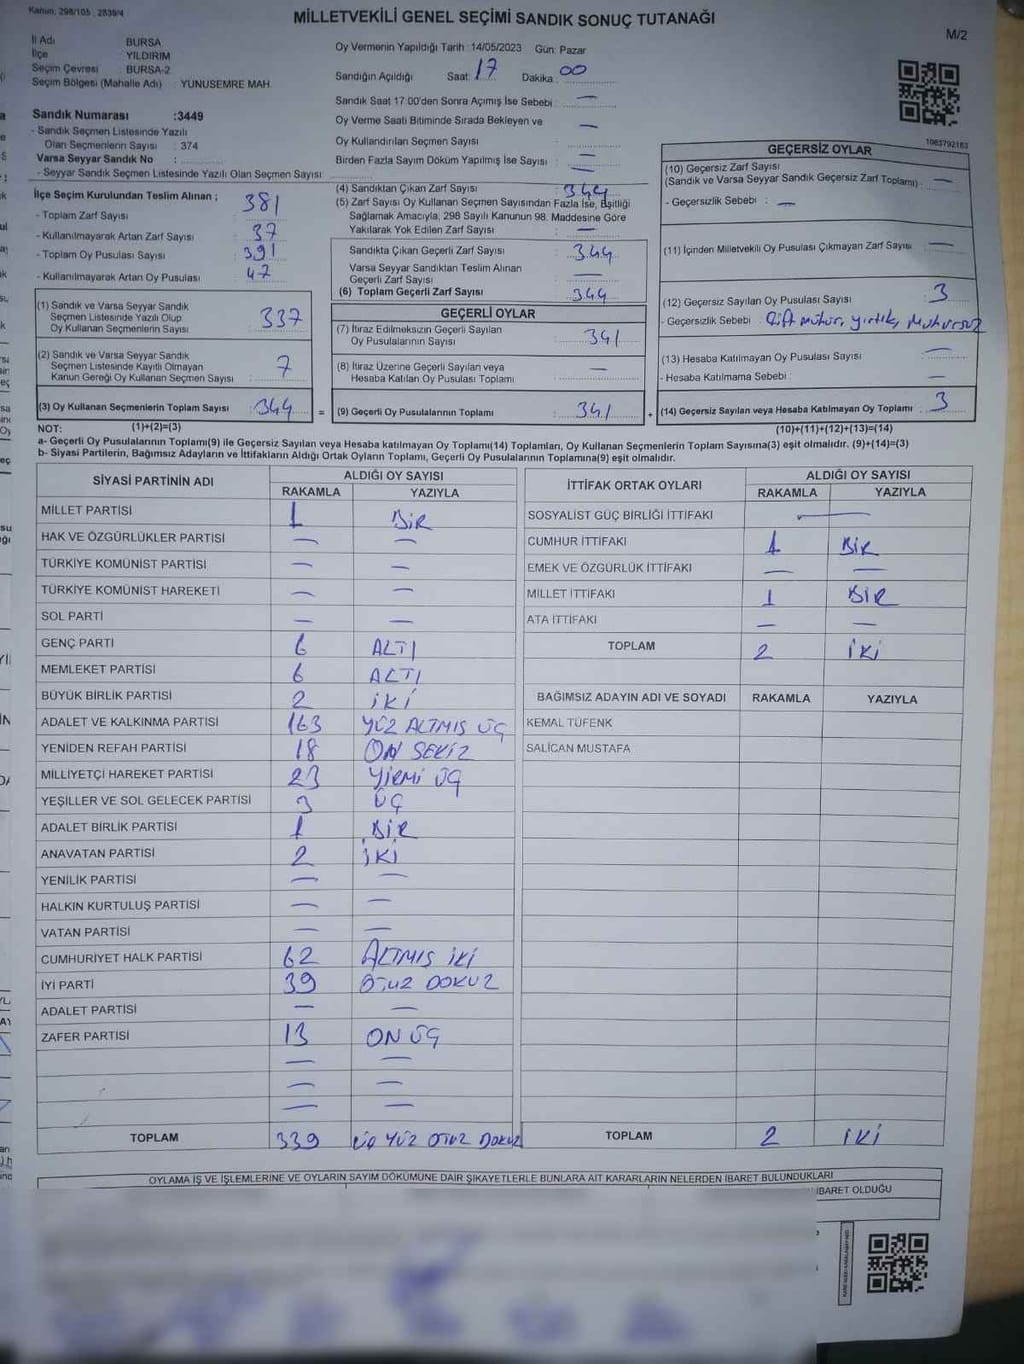 Kanun: 298/105 , 2839/4
MİLLETVEKİLİ GENEL SEÇİMİ SANDIK SONUÇ TUTANAĞI
M/2
İl Adı BURSA
İlçe YILDIRIM
Seçim Çevresi : BURSA-2
Seçim Bölgesi (Mahalle Adı) : YUNUSEMRE MAH.
Oy Vermenin Yapıldığı Tarih : 14/05/2023 Gün: Pazar
Sandığın Açıldığı Saat: 17 Dakika : 00
Sandık Saat 17.00'den Sonra Açımış İse Sebebi : —
Oy Verme Saati Bitiminde Sırada Bekleyen ve
Oy Kullandırılan Seçmen Sayısı : —
Birden Fazla Sayım Döküm Yapılmış İse Sayısı : —
Sandık Numarası :3449
- Sandık Seçmen Listesinde Yazılı
Olan Seçmenlerin Sayısı : 374
Varsa Seyyar Sandık No :
- Seyyar Sandık Seçmen Listesinde Yazılı Olan Seçmen Sayısı:
İlçe Seçim Kurulundan Teslim Alınan ;
- Toplam Zarf Sayısı : 381
- Kullanılmayarak Artan Zarf Sayısı : 37
- Toplam Oy Pusulası Sayısı : 391
- Kullanılmayarak Artan Oy Pusulası : 47
(1) Sandık ve Varsa Seyyar Sandık
Seçmen Listesinde Yazılı Olup
Oy Kullanan Seçmenlerin Sayısı : 337
(2) Sandık ve Varsa Seyyar Sandık
Seçmen Listesinde Kayıtlı Olmayan
Kanun Gereği Oy Kullanan Seçmen Sayısı : 7
(3) Oy Kullanan Seçmenlerin Toplam Sayısı : 344 =
(1)+(2)=(3)
(4) Sandıktan Çıkan Zarf Sayısı : 344
(5) Zarf Sayısı Oy Kullanan Seçmen Sayısından Fazla İse, Eşitliği
Sağlamak Amacıyla, 298 Sayılı Kanunun 98. Maddesine Göre
Yakılarak Yok Edilen Zarf Sayısı : —
Sandıkta Çıkan Geçerli Zarf Sayısı : 344
Varsa Seyyar Sandıktan Teslim Alınan
Geçerli Zarf Sayısı : —
(6) Toplam Geçerli Zarf Sayısı : 344
GEÇERLİ OYLAR
(7) İtiraz Edilmeksizin Geçerli Sayılan
Oy Pusulalarının Sayısı : 341
(8) İtiraz Üzerine Geçerli Sayılan veya
Hesaba Katılan Oy Pusulası Toplamı : —
(9) Geçerli Oy Pusulalarının Toplamı : 341 +
1063792163
GEÇERSİZ OYLAR
(10) Geçersiz Zarf Sayısı
(Sandık ve Varsa Seyyar Sandık Geçersiz Zarf Toplamı) : —
- Geçersizlik Sebebi : —
(11) İçinden Milletvekili Oy Pusulası Çıkmayan Zarf Sayısı : —
(12) Geçersiz Sayılan Oy Pusulası Sayısı : 3
- Geçersizlik Sebebi : Çift mühür, yırtık, Mühürsüz
(13) Hesaba Katılmayan Oy Pusulası Sayısı : —
- Hesaba Katılmama Sebebi : —
(14) Geçersiz Sayılan veya Hesaba Katılmayan Oy Toplamı : 3
(10)+(11)+(12)+(13)=(14)
NOT:
a- Geçerli Oy Pusulalarının Toplamı(9) ile Geçersiz Sayılan veya Hesaba katılmayan Oy Toplamı(14) Toplamları, Oy Kullanan Seçmenlerin Toplam Sayısına(3) eşit olmalıdır. (9)+(14)=(3)
b- Siyasi Partilerin, Bağımsız Adayların ve İttifakların Aldığı Ortak Oyların Toplamı, Geçerli Oy Pusulalarının Toplamına(9) eşit olmalıdır.
SİYASİ PARTİNİN ADI ALDIĞI OY SAYISI
RAKAMLA YAZIYLA
MİLLET PARTİSİ 1 BİR
HAK VE ÖZGÜRLÜKLER PARTİSİ — —
TÜRKİYE KOMÜNİST PARTİSİ — —
TÜRKİYE KOMÜNİST HAREKETİ — —
SOL PARTİ — —
GENÇ PARTİ 6 ALTI
MEMLEKET PARTİSİ 6 ALTI
BÜYÜK BİRLİK PARTİSİ 2 İKİ
ADALET VE KALKINMA PARTİSİ 163 YÜZ ALTMIŞ ÜÇ
YENİDEN REFAH PARTİSİ 18 ON SEKİZ
MİLLİYETÇİ HAREKET PARTİSİ 23 YİRMİ ÜÇ
YEŞİLLER VE SOL GELECEK PARTİSİ 3 ÜÇ
ADALET BİRLİK PARTİSİ 1 BİR
ANAVATAN PARTİSİ 2 İKİ
YENİLİK PARTİSİ — —
HALKIN KURTULUŞ PARTİSİ — —
VATAN PARTİSİ — —
CUMHURİYET HALK PARTİSİ 62 ALTMIŞ İKİ
İYİ PARTİ 39 OTUZ DOKUZ
ADALET PARTİSİ — —
ZAFER PARTİSİ 13 ON ÜÇ
— —
— —
— —
TOPLAM 339 ÜÇ YÜZ OTUZ DOKUZ
İTTİFAK ORTAK OYLARI ALDIĞI OY SAYISI
RAKAMLA YAZIYLA
SOSYALİST GÜÇ BİRLİĞİ İTTİFAKI —
CUMHUR İTTİFAKI 1 BİR
EMEK VE ÖZGÜRLÜK İTTİFAKI — —
MİLLET İTTİFAKI 1 BİR
ATA İTTİFAKI — —
TOPLAM 2 İKİ
BAĞIMSIZ ADAYIN ADI VE SOYADI RAKAMLA YAZIYLA
KEMAL TÜFENK
SALİCAN MUSTAFA
TOPLAM 2 İKİ
OYLAMA İŞ VE İŞLEMLERİNE VE OYLARIN SAYIM DÖKÜMÜNE DAİR ŞİKAYETLERLE BUNLARA AİT KARARLARIN NELERDEN İBARET BULUNDUKLARI
İBARET OLDUĞU